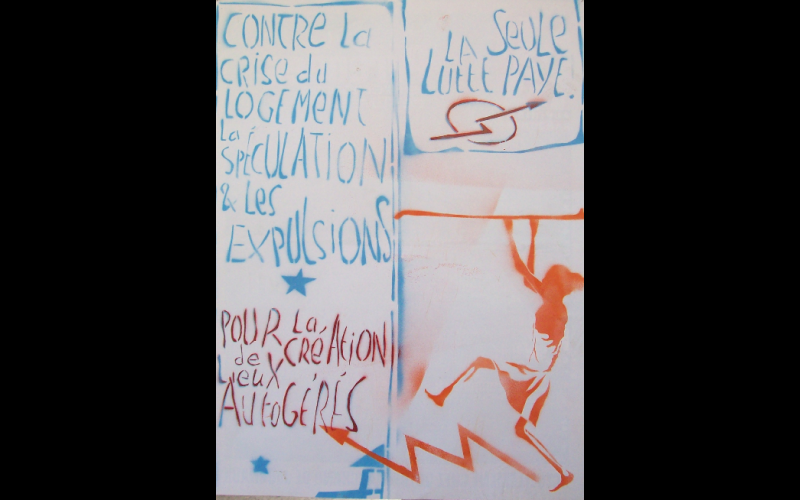 CONTRE La
CRISE du
LOGEMENT
La
SPÉCULATION
& LES
EXPULSIONS
POUR La
CRÉATION
de
LIEUX
AUTOGÉRÉS
LA SEULE
LUTTE PAYE.